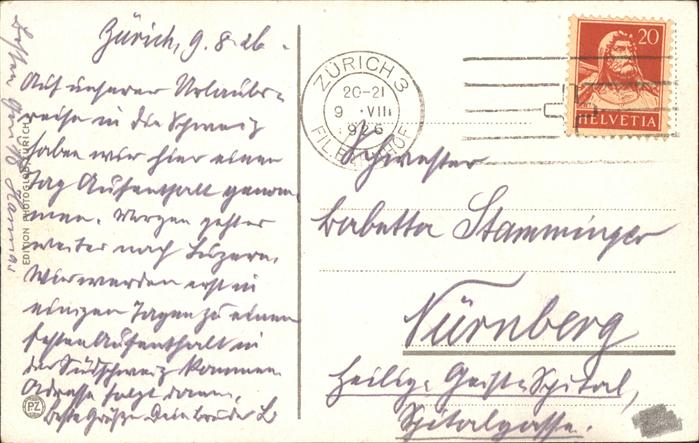 Zürich, 9. 8. 26.
Auf unserer Urlaubs-
reise in die Schweiz
haben wir hier einen
Tag Aufenthalt genom-
men. Morgen gehts
weiter nach Luzern.
Wir werden erst in
einigen Tagen zu einem
festen Aufenthalt in
der Südschweiz kommen.
Adresse folgt dann.
Beste Grüße Dein Bruder L
Besten Gruß
EDITION PHOTOGLOB ZÜRICH
PZ
ZÜRICH 3
20-21
9. VIII
1926
FIL. BAHNHOF
20
HELVETIA
Schwester
Babetta Stamminger
Nürnberg
Heilig-Geist-Spital,
Spitalgasse.